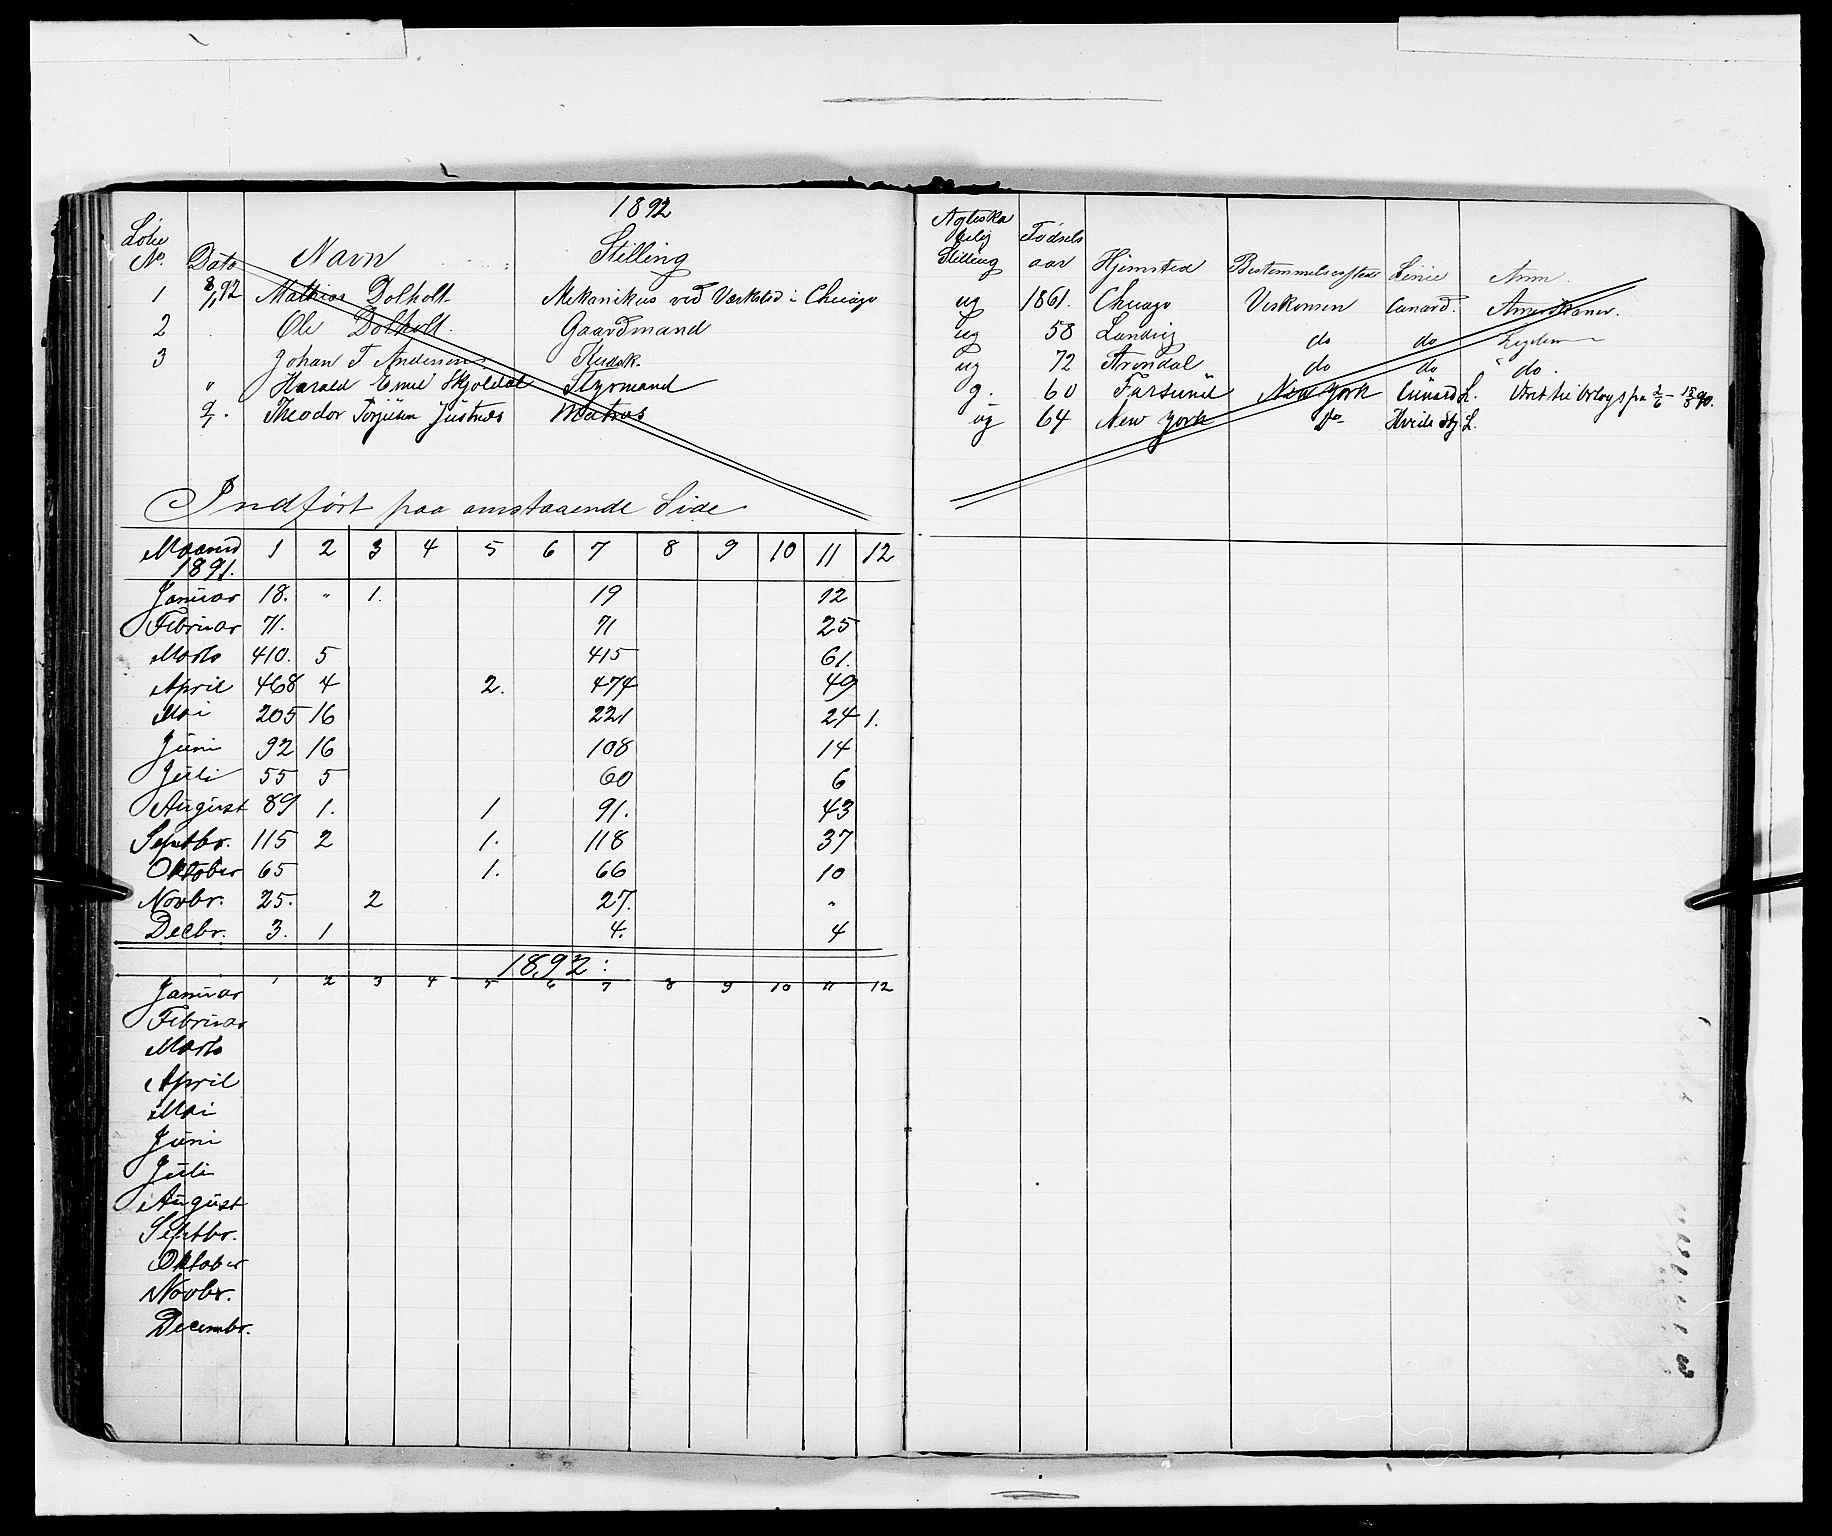 1892
Løbe No. Dato Navn Stilling Ægteskabelig Stilling Fødselsaar Hjemsted Bestemmelsessted Linie Anm.
1 8/1 92 Mathias Dolholt Mekanikus ved Værksted i Chicago ug 1861. Chicago Viskonsin Cunard. Amerikaner.
2 Ole Dolholt. Gaardmand ug 58 Landvig do do
3 Johan T Andersen Kudsk. ug 72 Arendal do do " do.
" Harald Emil Skjoldal Styrmand g. 60 Farsund New York Cunard L. Været til Udbygs
Theodor Torjusen Justnes Matros ug 64 New York Do Hvide Stj. L.
Indført paa omstaaende Side
Maaned 1891. 1 2 3 4 5 6 7 8 9 10 11 12
Januar 18. " 1. 19 12
Februar 71. 71 25
Marts 410. 5 415 61.
April 468 4 2. 474 49
Mai 205 16 221 24 1.
Juni 92 16 108 14
Juli 55 5 60 6
August 89 1. 1 91. 43
Septbr. 115 2 1. 118 37
Oktober 65 1. 66 10
Novbr. 25. 2 27. "
Decbr. 3. 1 4. 4
1892:
1 2 3 4 5 6 7 8 9 10 11 12
Januar
Februar
Marts
April
Mai
Juni
Juli
August
Septbr.
Oktober
Novbr.
Decembr.